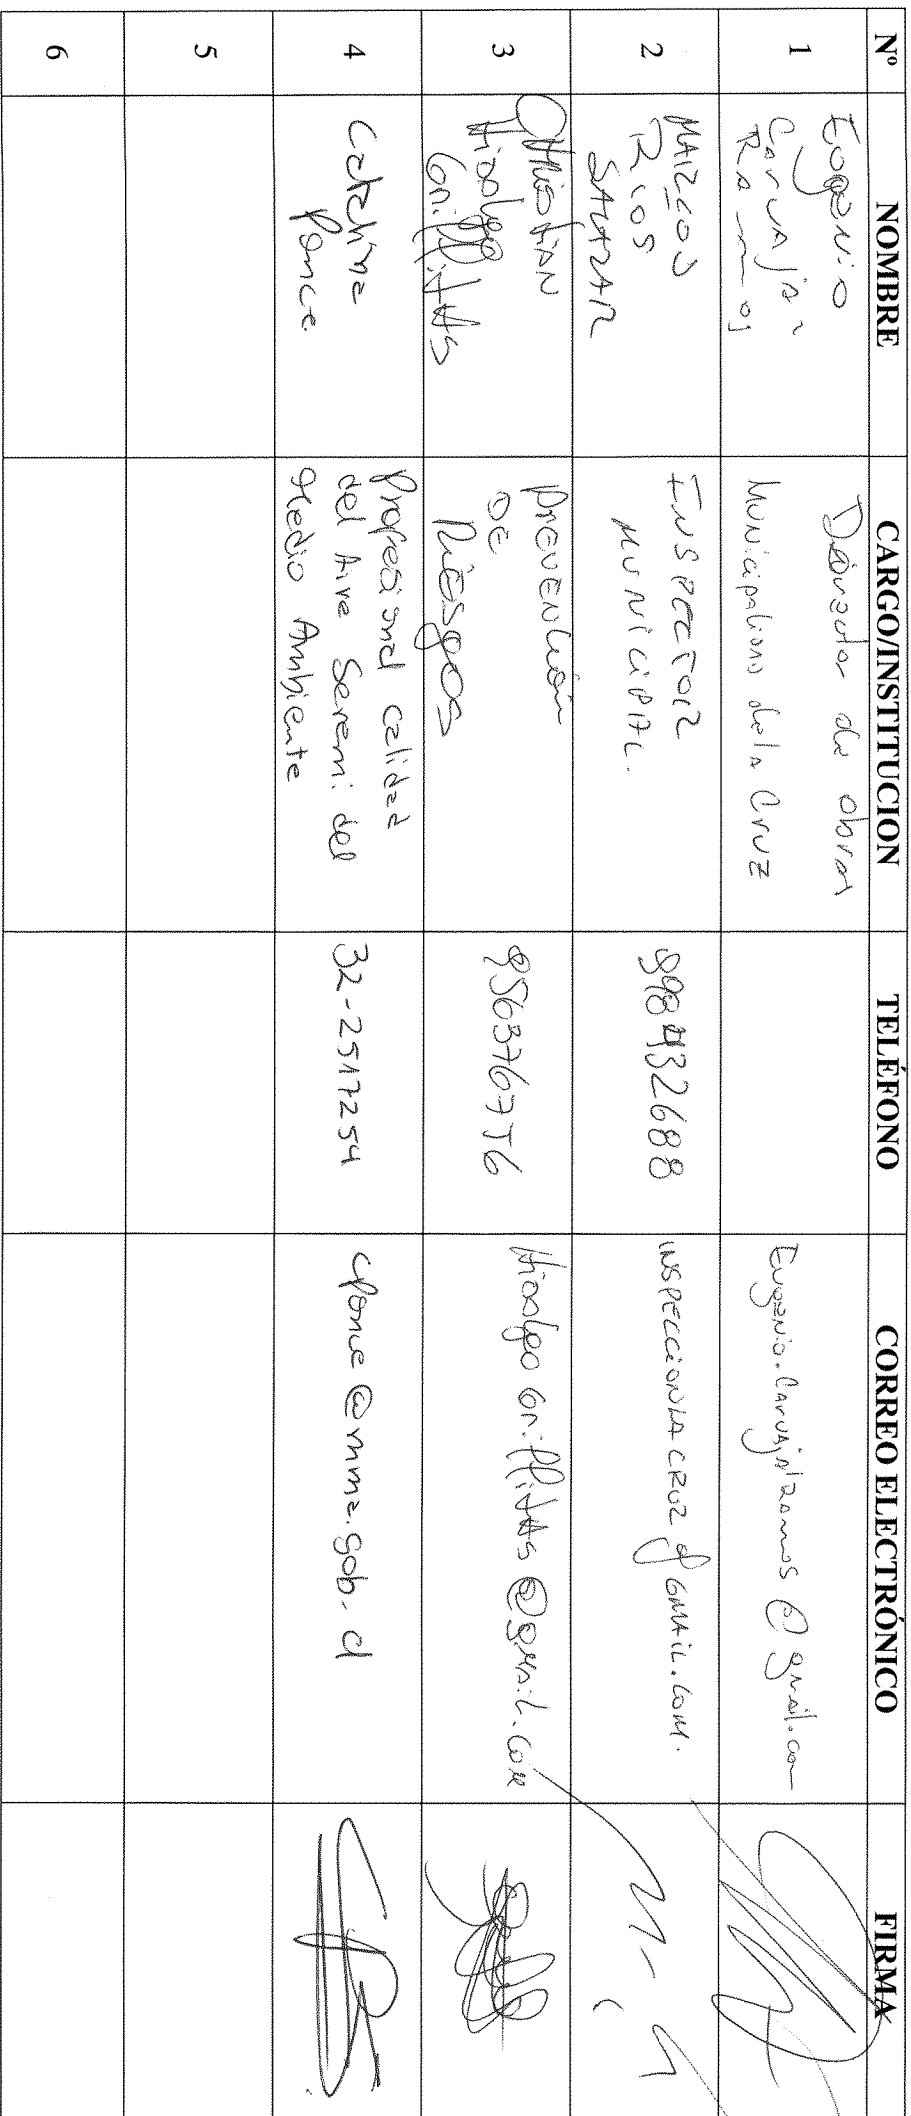 Nº NOMBRE CARGO/INSTITUCION TELÉFONO CORREO ELECTRÓNICO FIRMA
1
Eugenio
Carvajal
Ramos
Director de obras
Municipalidad de la Cruz
Eugenio.Carvajalramos@gmail.com
2
MARCOS
RIOS
SALAZAR
INSPECTOR
MUNICIPAL.
998432688
INSPECCIONLACRUZ@GMAIL.COM.
3
CHRISTIAN
HIDALGO
GRIFFITHS
PREVENCIÓN
DE
RIESGOS
956376756
Hidalgo Griffiths@gmail.com
4
Catalina
Ponce
Profesional calidad
del Aire Seremi del
Medio Ambiente
32-2517254
cponce@mma.gob.cl
5
6